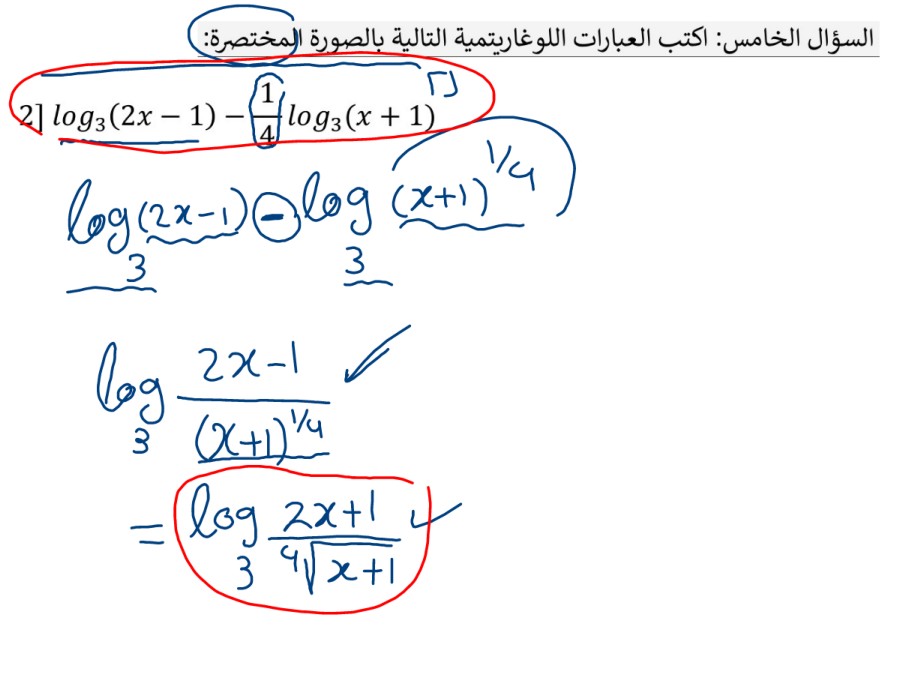 السؤال الخامس: اكتب العبارات اللوغاريتمية التالية بالصورة المختصرة:
2] log₃(2x − 1) − 1/4 log₃(x + 1)
log₃(2x−1) − log₃(x+1)^1/4
log₃ (2x−1)/((x+1)^1/4)
= log₃ (2x+1)/(⁴√(x+1))